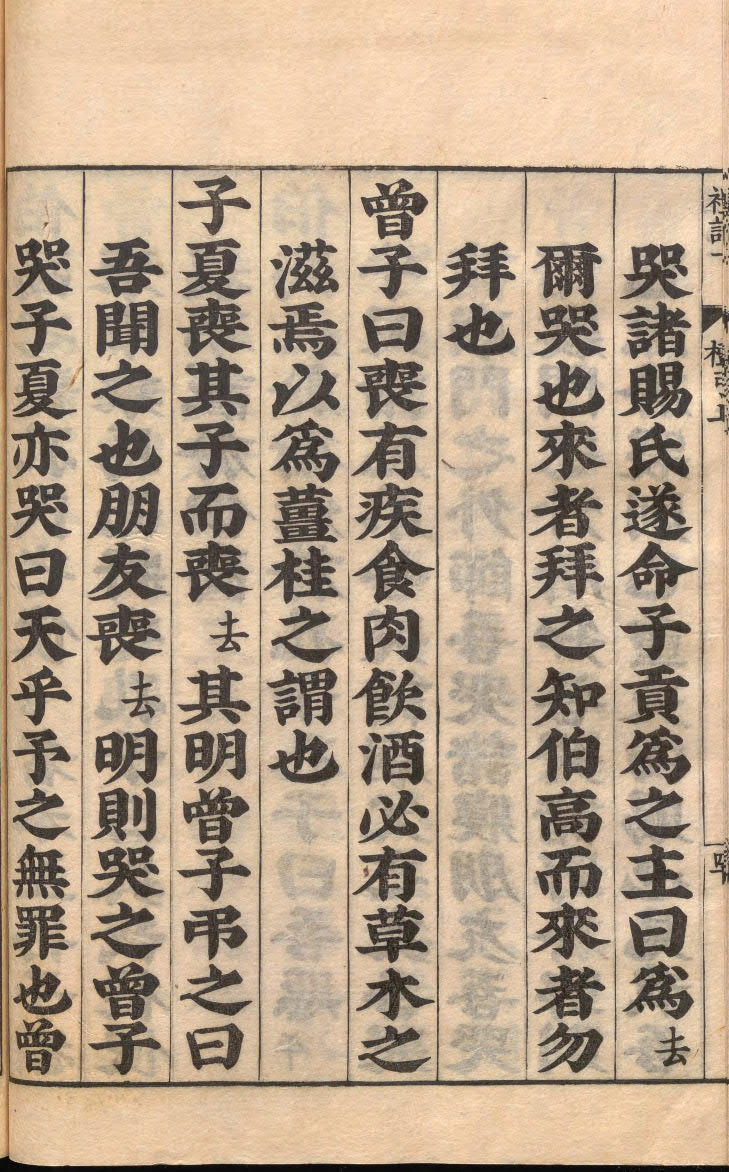 哭諸賜氏遂命子貢爲之主曰爲去
爾哭也來者拜之知伯高而來者勿
拜也
曾子曰喪有疾食肉飮酒必有草木之
滋焉以爲薑桂之謂也
子夏喪其子而喪去其明曾子弔之曰
吾聞之也朋友喪去明則哭之曾子
哭子夏亦哭曰天乎予之無罪也曾